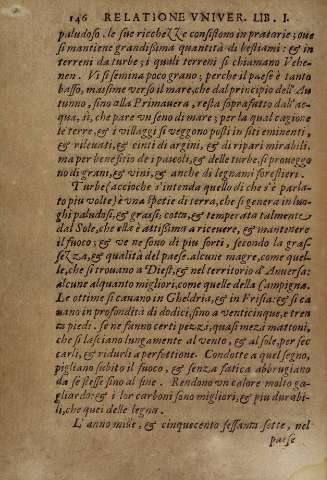 146 RELATIONE VNIVER. LIB. I.
paludoso. le sue ricchezze consistono in pratarie; oue
si mantiene grandissima quantità di bestiami: & in
terreni da turbe; i quali terreni si chiamano Vehe-
nen. Vi si semina poco grano; perche il paese è tanto
basso, massime verso il mare, che dal principio dell'Au
tunno, sino alla Primauera, resta soprafatto dall'ac-
qua, sì, che pare vn seno di mare; per la qual cagione
le terre, & i villaggi si veggono posti in siti eminenti,
& rileuati, & cinti di argini, & di ripari mirabili.
ma per benefitio de i pascoli, & delle turbe, si proueggo
no di grani, & vini, & anche di legnami forestieri.
Turbe (accioche s'intenda quello di che s'è parla-
to piu volte) è vna spetie di terra, che si genera in luo-
ghi paludosi, & grassi, cotta, & temperata talmente
dal Sole, che ella è attissima à riceuere, & mantenere
il fuoco; & ve ne sono di piu sorti, secondo la gras
sezza, & qualità del paese. alcune magre, come quel
le, che si trouano a Diest, & nel territorio d'Anuersa:
alcune alquanto migliori, come quelle della Campigna.
Le ottime si cauano in Gheldria, & in Frisia: & si ca
uano in profondità di dodici, sino a venticinque, e tren
ta piedi. se ne fanno certi pezzi, quasi mezi mattoni,
che si lasciano lungamente al vento, & al sole, per sec
carli, & ridurli a perfettione. Condotte a quel segno,
pigliano subito il fuoco, & senza fatica abbrugiano
da se stesse sino al fine. Rendono vn calore molto ga-
gliardo: & i lor carboni sono migliori, & piu durabi-
li, che quei delle legna.
L'anno mille, & cinquecento sessanta sotte, nel
paese